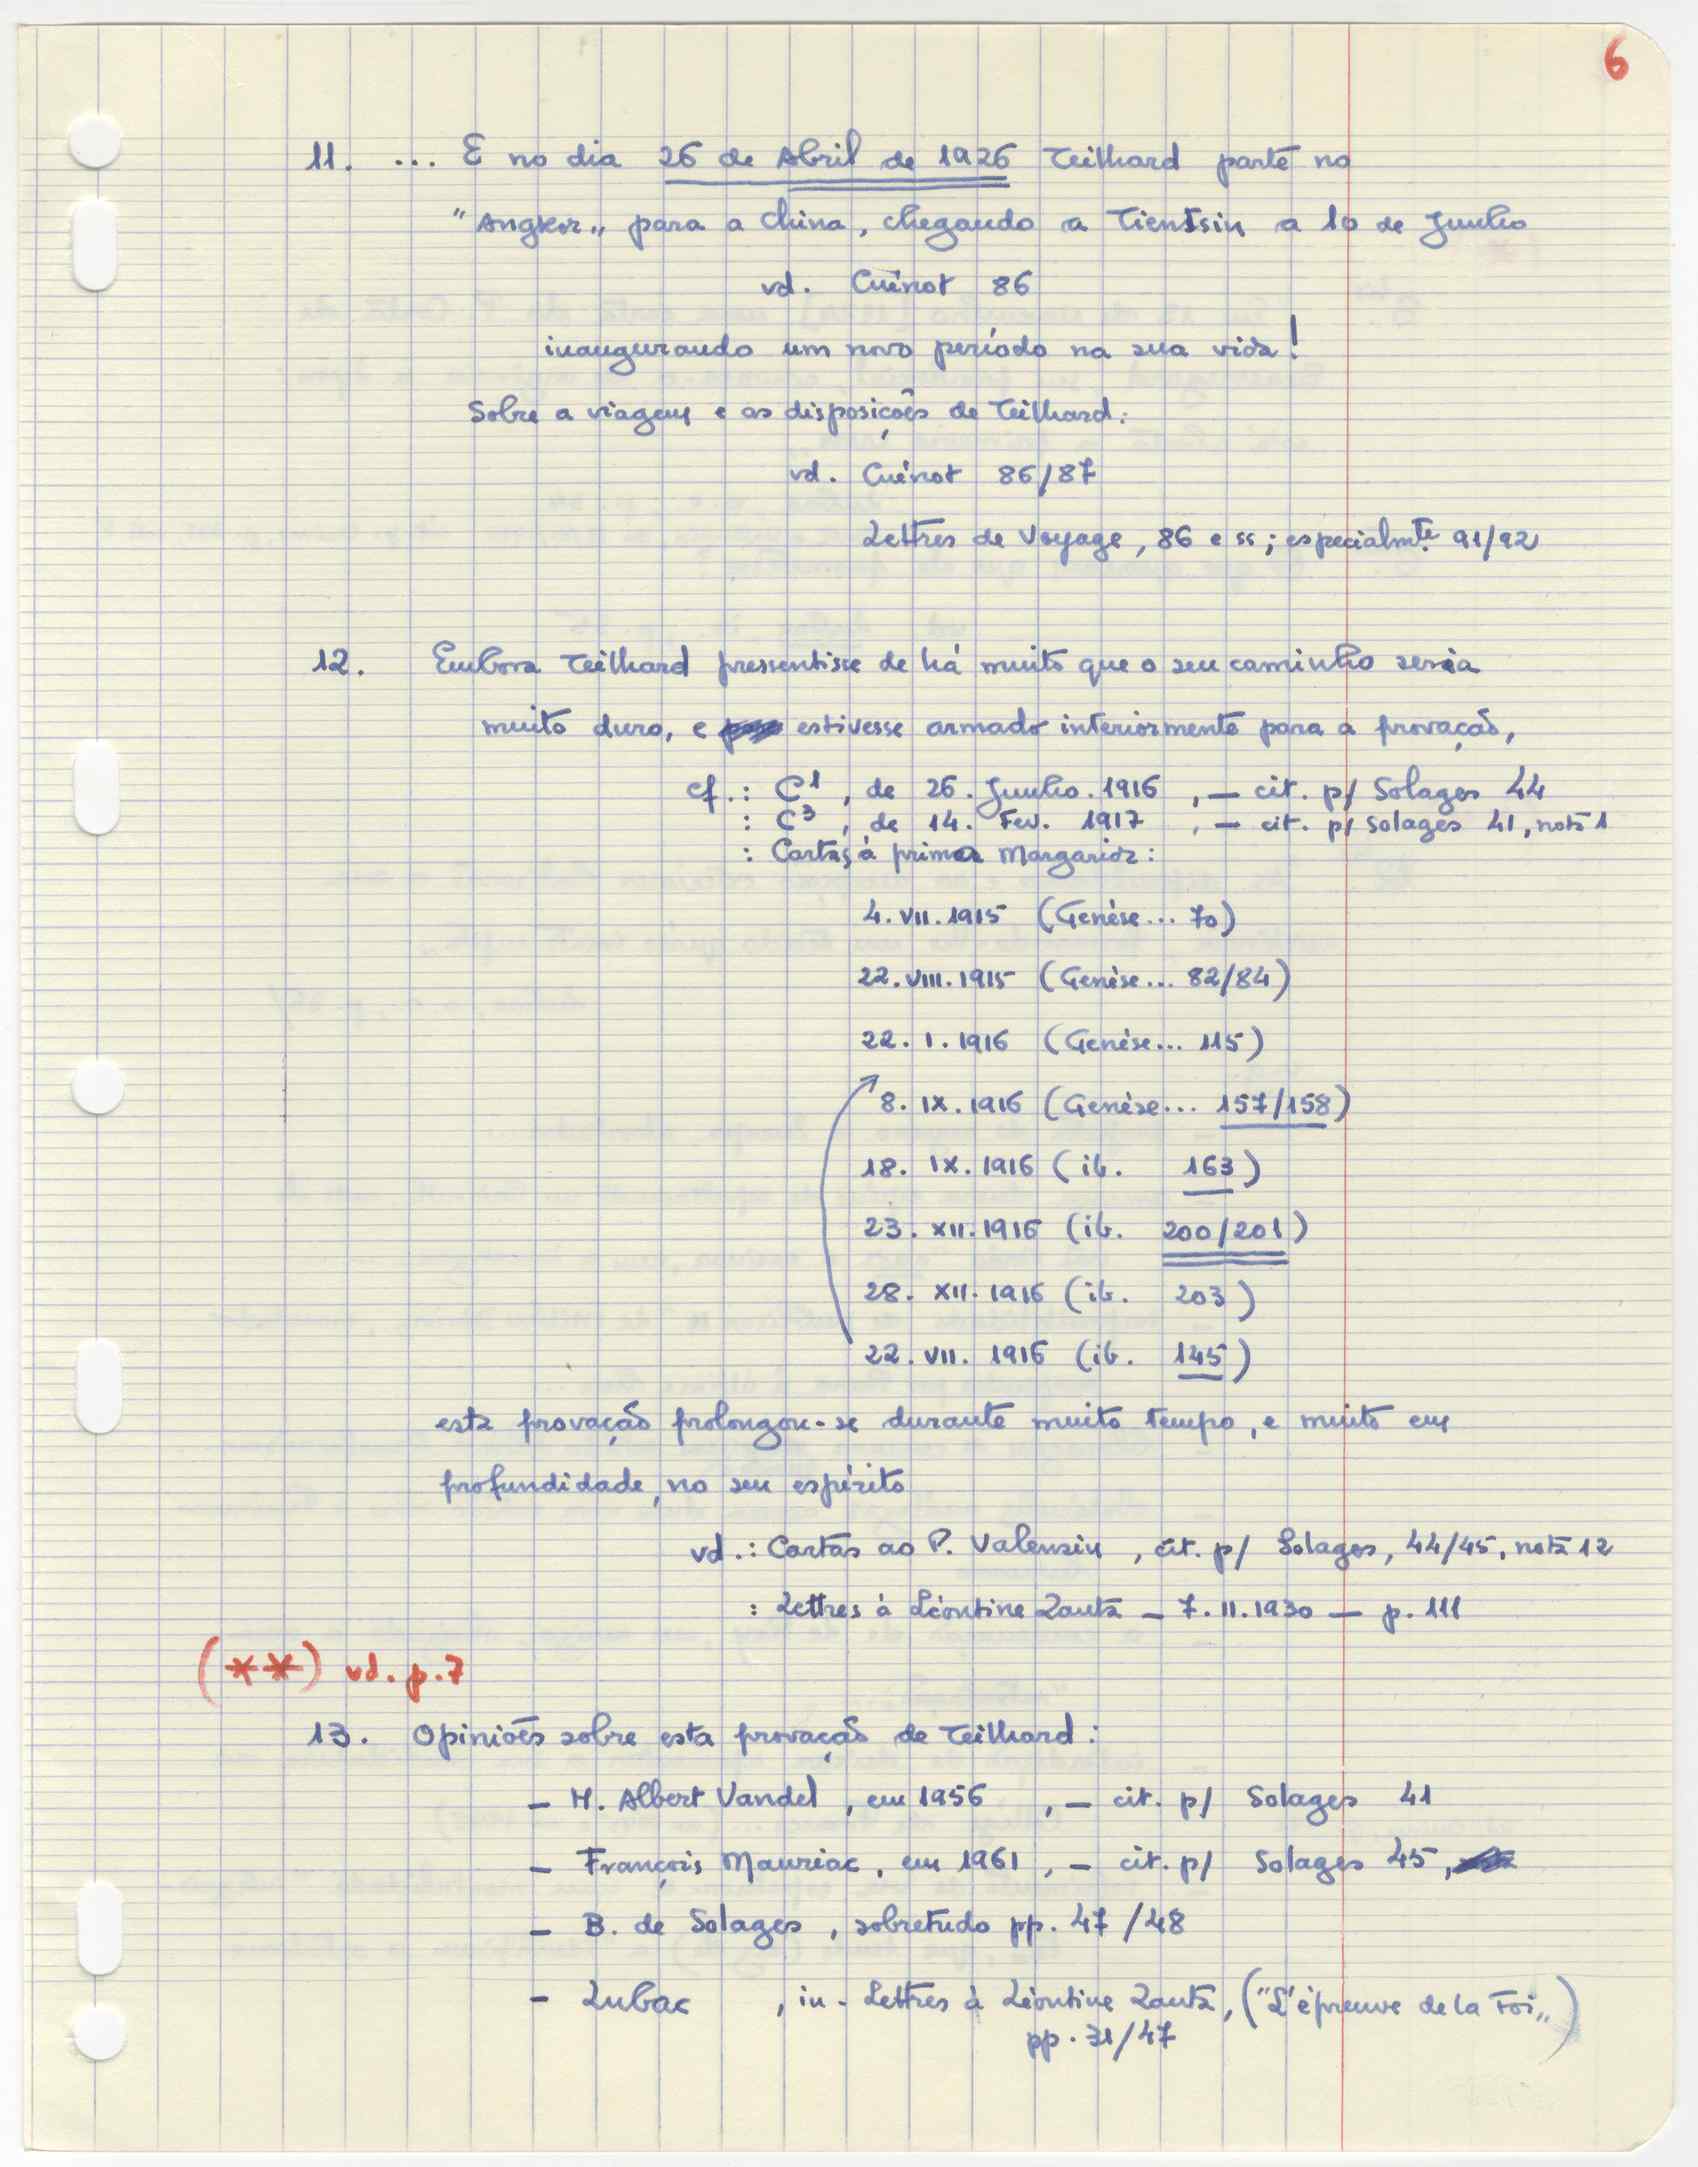 6
11. ... E no dia 26 de Abril de 1926 Teilhard parte no
"Angkor" para a China, chegando a Tientsin a 10 de Junho
vd. Cuénot 86
inaugurando um novo período na sua vida!
Sobre a viagem e as disposições de Teilhard:
vd. Cuénot 86/87
Lettres de Voyage, 86 e ss; especialmte. 91/92
12. Embora Teilhard pressentisse de há muito que o seu caminho seria
muito duro, e estivesse armado interiormente para a provação,
cf.: C1, de 26. Junho. 1916, — cit. p/ Solages 44
: C3, de 14. Fev. 1917, — cit. p/ Solages 41, nota 1
: Cartas à prima Margarida:
4. VII. 1915 (Genèse... 70)
22. VIII. 1915 (Genèse... 82/84)
22. I. 1916 (Genèse... 115)
8. IX. 1916 (Genèse... 157/158)
18. IX. 1916 (ib. 163)
23. XII. 1916 (ib. 200/201)
28. XII. 1916 (ib. 203)
22. VII. 1916 (ib. 145)
esta provação prolongou-se durante muito tempo, e muito em
profundidade, no seu espírito
vd.: Cartas ao P. Valensin, cit. p/ Solages, 44/45, nota 12
: Lettres à Léontine Zanta — 7. II. 1930 — p. 111
(**) vd. p. 7
13. Opiniões sobre esta provação de Teilhard:
— M. Albert Vandel, em 1956, — cit. p/ Solages 41
— François Mauriac, em 1961, — cit. p/ Solages 45,
— B. de Solages, sobretudo pp. 47/48
— Lubac, in - Lettres à Léontine Zanta, ("L'épreuve de la Foi")
pp. 31/47